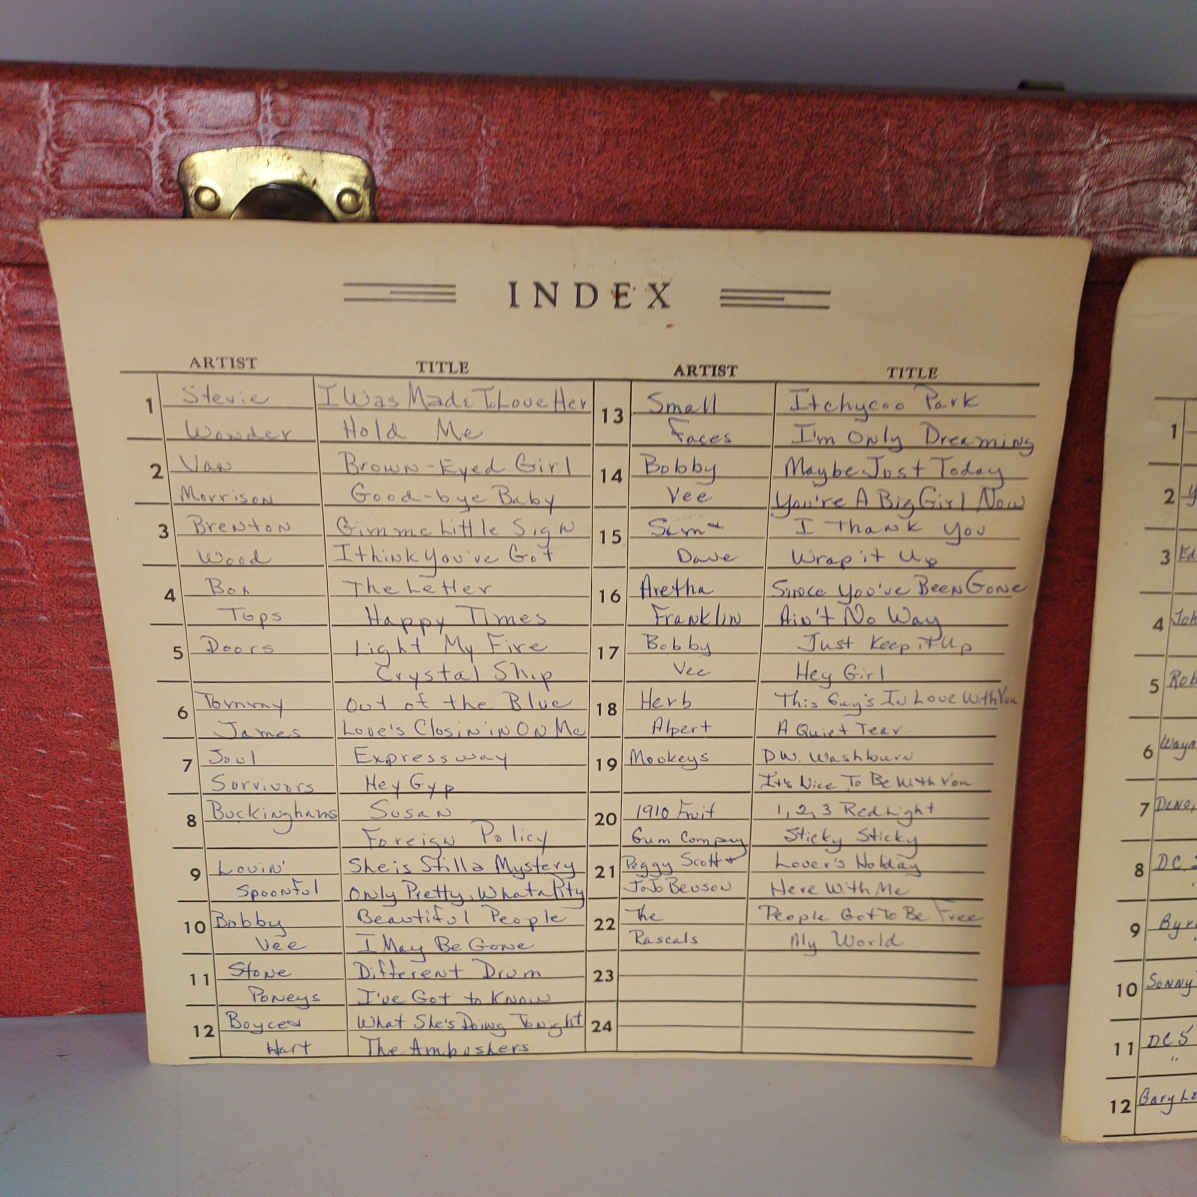 INDEX
ARTIST TITLE
1 Stevie I Was Made To Love Her
Wonder Hold Me
2 Van Brown-Eyed Girl
Morrison Good-bye Baby
3 Brenton Gimme Little Sign
Wood I think You've Got
4 Box The Letter
Tops Happy Times
5 Doors Light My Fire
Crystal Ship
6 Tommy Out of the Blue
James Love's Closin' in On Me
7 Soul Expressway
Survivors Hey Gyp
8 Buckinghams Susan
Foreign Policy
9 Lovin' She is Still a Mystery
Spoonful Only Pretty, What a Pity
10 Bobby Beautiful People
Vee I May Be Gone
11 Stone Different Drum
Poneys I've Got to Know
12 Boyce & What She's Doing Tonight
Hart The Ambushers
ARTIST TITLE
13 Small Itchycoo Park
Faces I'm Only Dreaming
14 Bobby Maybe Just Today
Vee You're A Big Girl Now
15 Sam & I Thank You
Dave Wrap it Up
16 Aretha Since You've Been Gone
Franklin Ain't No Way
17 Bobby Just Keep it Up
Vee Hey Girl
18 Herb This Guy's In Love With You
Alpert A Quiet Tear
19 Monkeys D.W. Washburn
It's Nice To Be With You
20 1910 Fruit 1, 2, 3 Red Light
Gum Company Sticky Sticky
21 Peggy Scott & Lover's Holiday
JoJo Benson Here With Me
22 The People Got To Be Free
Rascals My World
23
24
1
2
3
4
5
6
7
8 DC
9
10 Sonny
11 DC5
"
12